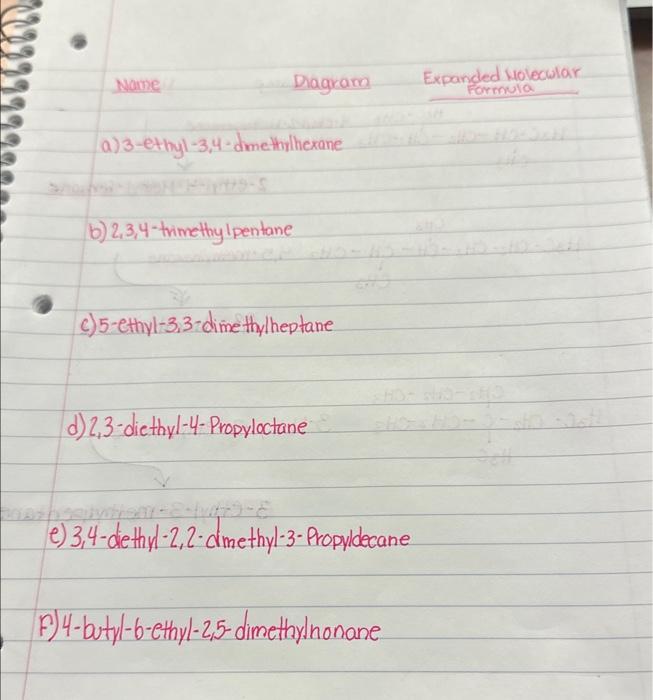 Name Diagram Expanded Molecular
Formula
a) 3-ethyl-3,4-dimethylhexane
b) 2,3,4-trimethylpentane
c) 5-ethyl-3,3-dimethylheptane
d) 2,3-diethyl-4-Propyloctane
e) 3,4-diethyl-2,2-dimethyl-3-Propyldecane
F) 4-butyl-6-ethyl-2,5-dimethylnonane